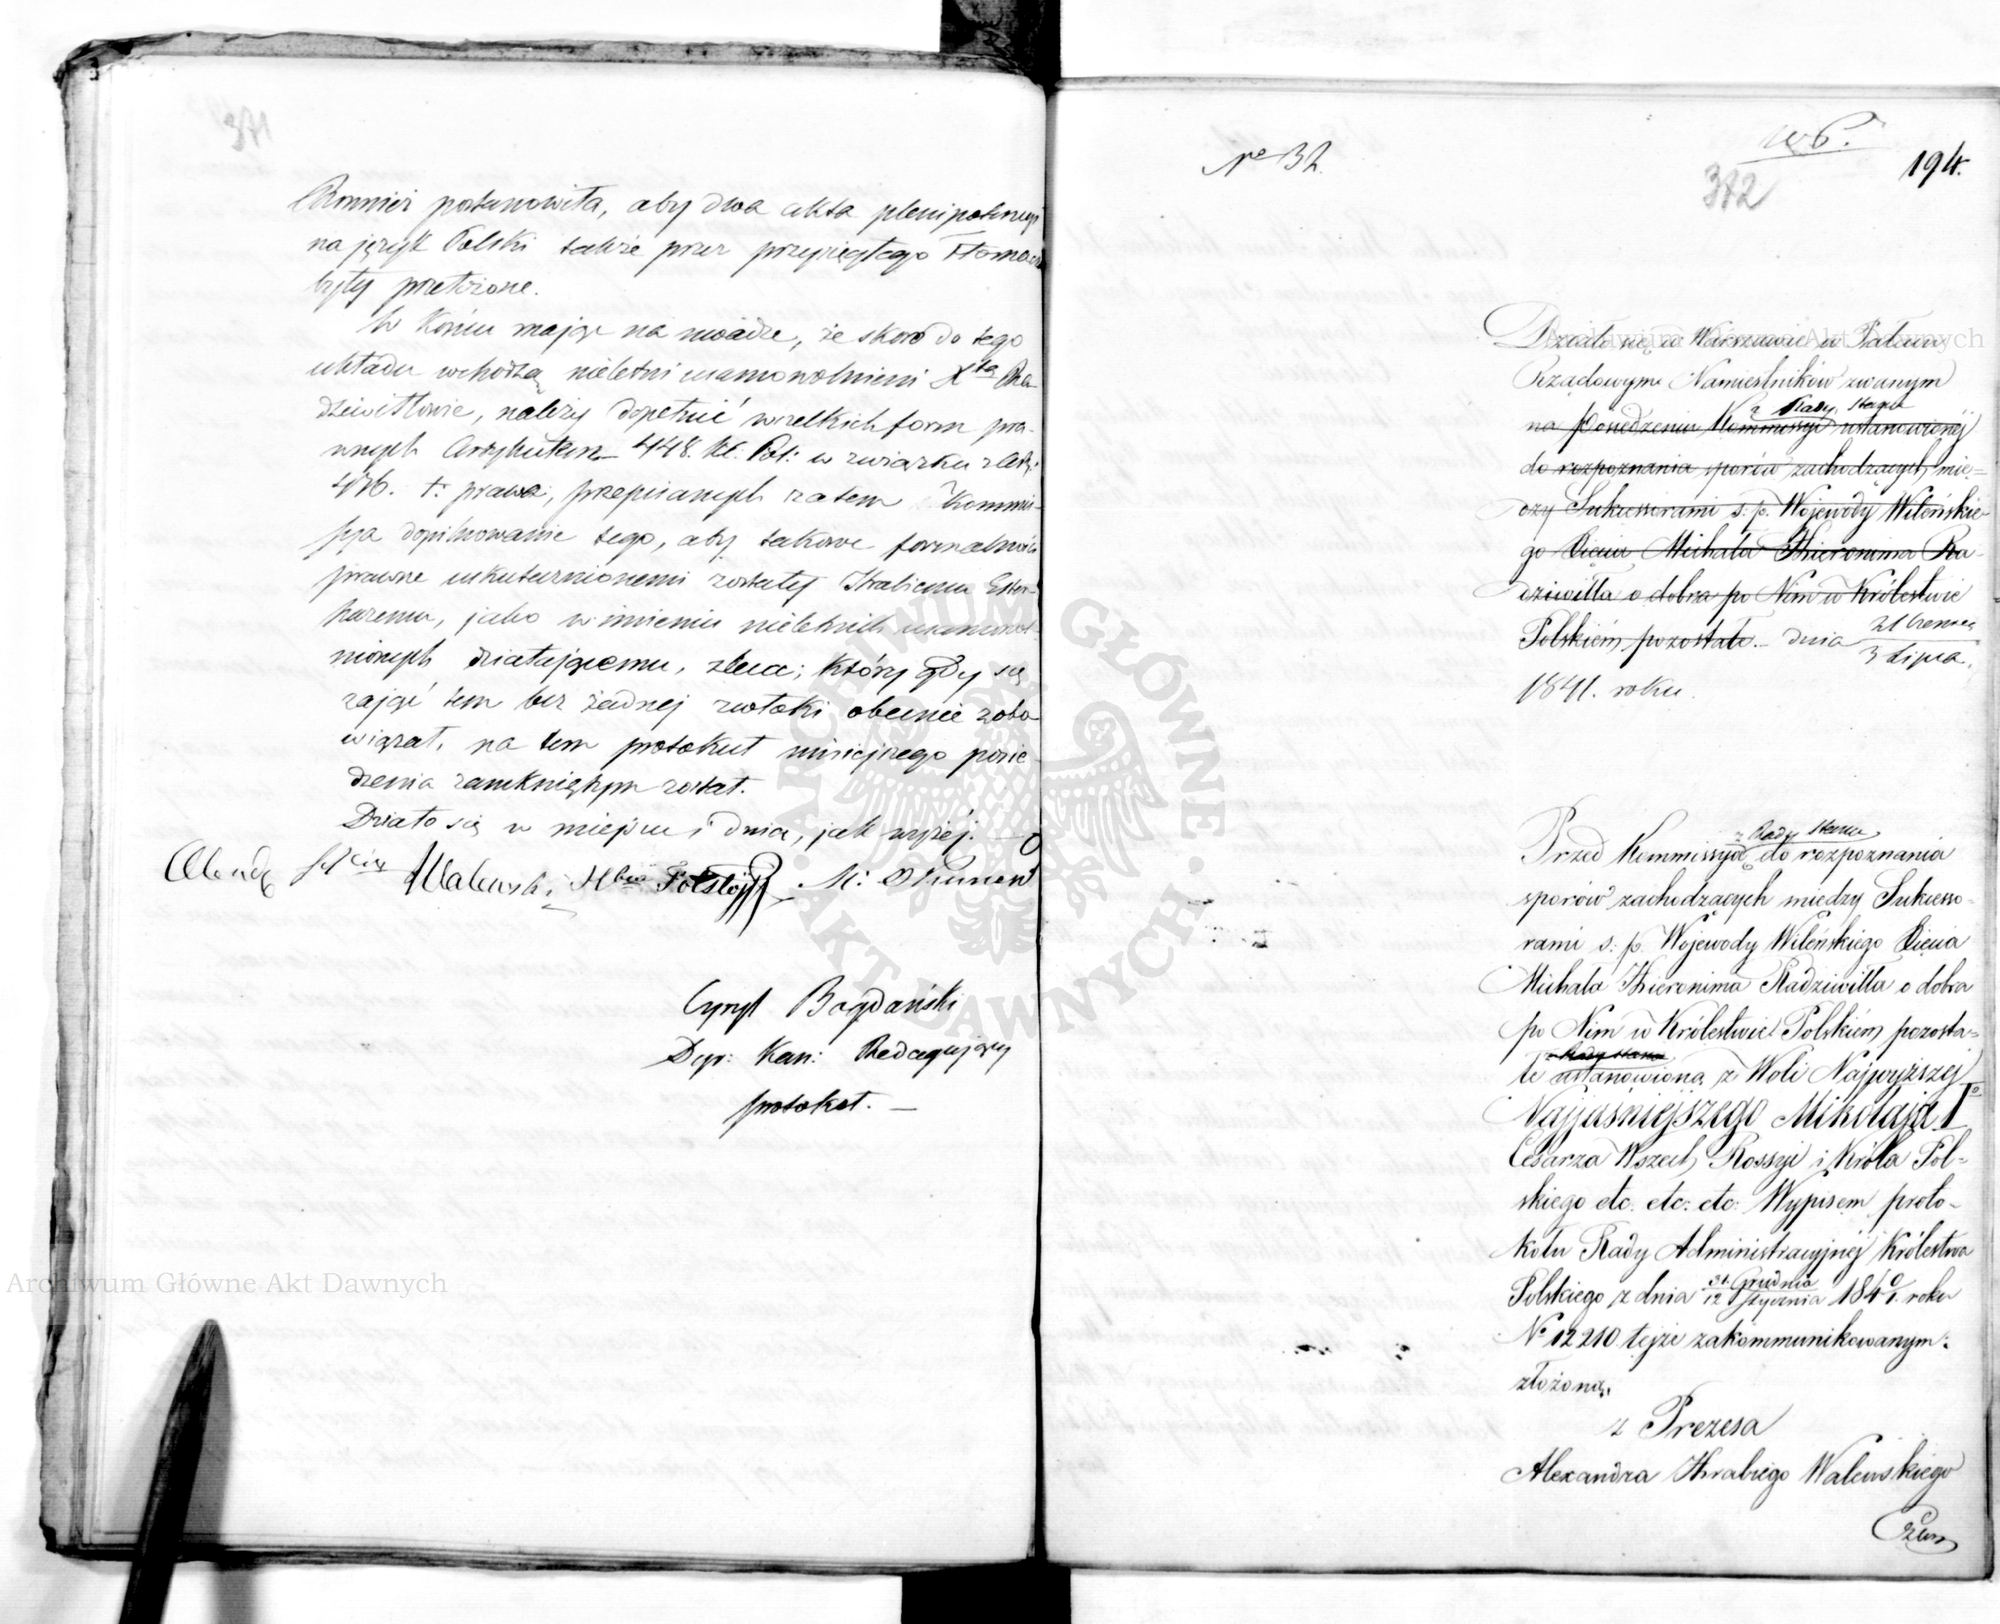 371
Romnież postanowiła, aby dwa akta plenipotencyi
na język Polski także przez przysięgłego Tłomacza
były przełożone.
W Końcu mając na uwadze, że skoro do tego
układu wchodzą nieletni usamowolnieni Xta Ra-
dziwiłłowie, należy dopełnić wszelkich form pra-
wnych Artykułem 448. K.C. Pol: w związku z Art:
476. t: prawa, przepisanych zatem Kommis-
syja dopilnowanie tego, aby takowe formalności
prawne uskutecznionemi zostały Hrabiemu Ester-
hazemu, jako w imieniu nieletnich usamowol-
nionych działającemu, zleca; który gdy się
zająć tem bez żadnej zwłoki obecnie zobo-
wiązał, na tem protokuł niniejszego posie-
dzenia zamkniętym został.
Działo się w miejscu i dniu, jak wyżej.
Walewski
Cyryl Bogdański
Kan: Redagujący
protokuł.
No 32.
372
194.
Działo się w Warszawie w Pałacu
Rządowym Namiestników zwanym
z Rady Stanu
na Posiedzeniu Kommissyi ustanowionéj
do rozpoznania sporów zachodzących mię=
dzy Sukcessorami ś. p. Wojewody Wileńskie-
go Xięcia Michała Hieronima Ra-
dziwiłła o dobra po Nim w Królestwie
Polskiém pozostałe. dnia 21 Czerwca
3 Lipca
1841. roku.
z Rady Stanu
Przed Kommissyą do rozpoznania
sporów zachodzących między Sukcesso-
rami ś: p. Wojewody Wileńskiego Xięcia
Michała Hieronima Radziwiłła o dobra
po Nim w Królestwie Polskiém pozosta=
z Rady Stanu
łe ustanowioną z Woli Najwyższej
Najjaśniejszego Mikołaja Igo
Cesarza Wszech Rossyi i Króla Pol-
skiego etc. etc: etc: Wypisem proto-
kołu Rady Administracyjnéj Królestwa
Polskiego z dnia 31. Grudnia
12 Stycznia 1840/1. roku
No 12210 tejże zakommunikowanym:
złożoną,
z Prezesa
Alexandra Hrabiego Walewskiego
Człon
Archiwum Główne Akt Dawnych
Archiwum Główne Akt Dawnych
ARCHIWUM GŁÓWNE
AKT DAWNYCH